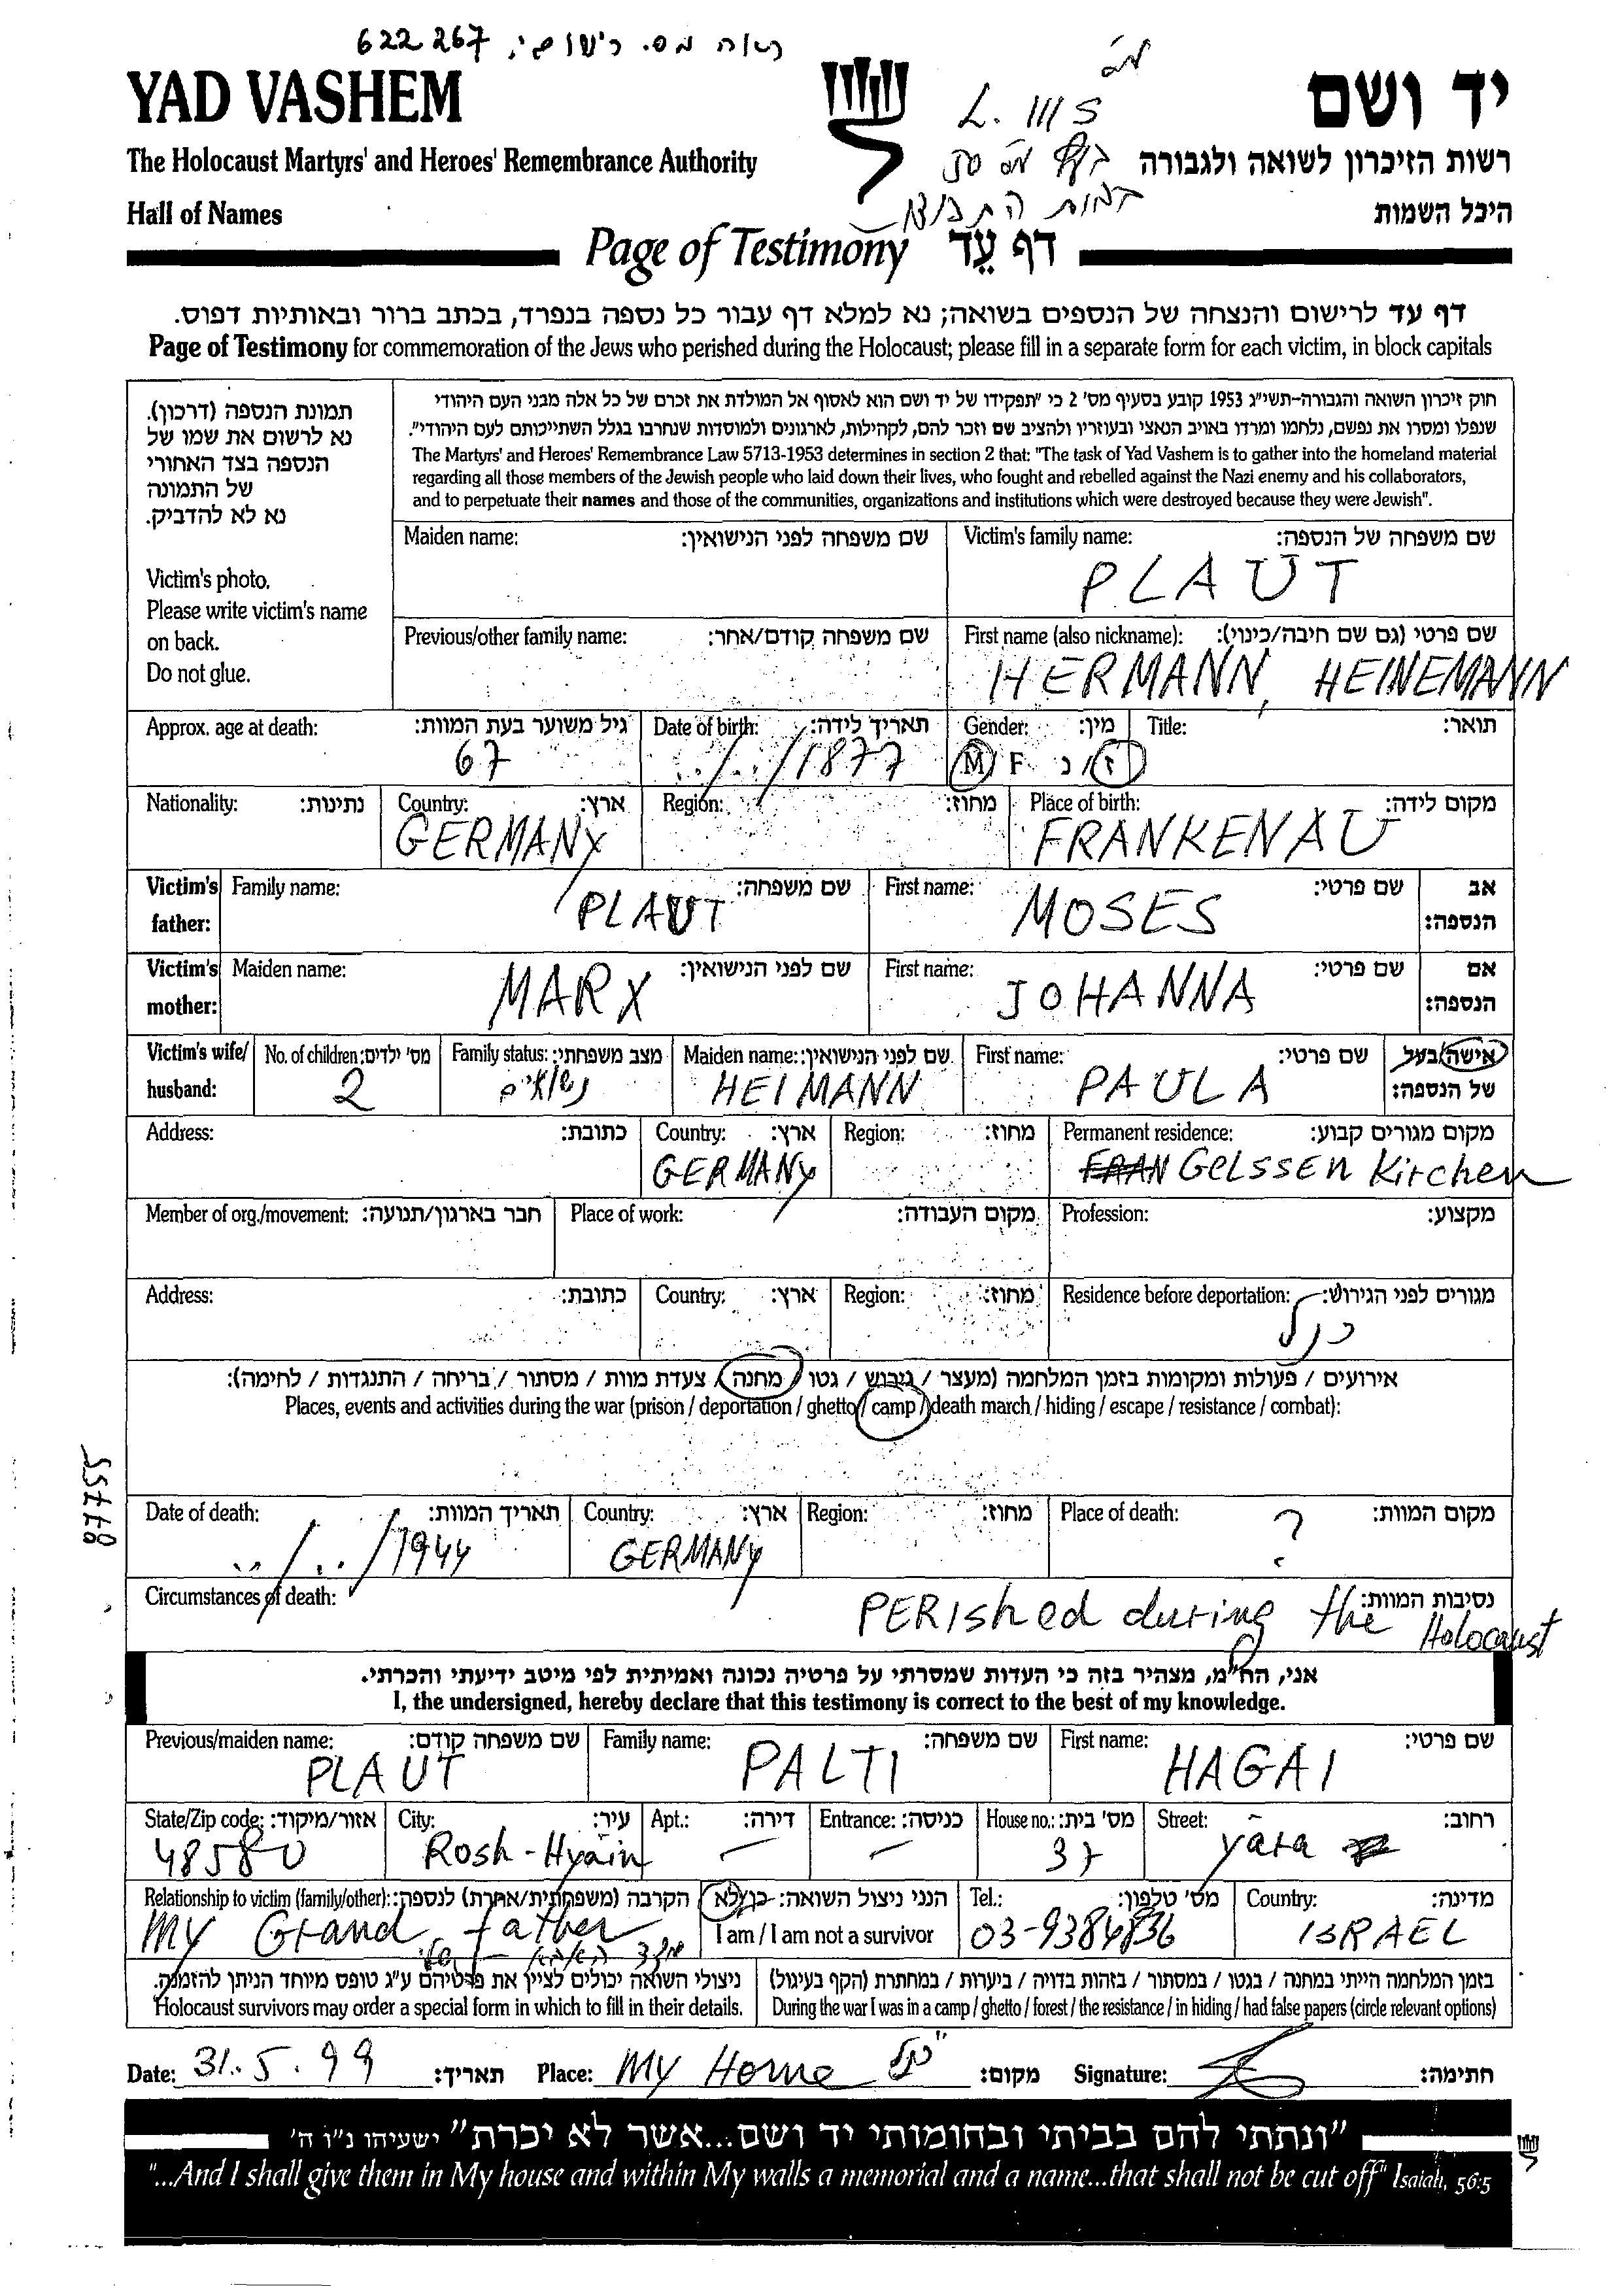 ראה מס. רישום: 622267
L. 111 S
YAD VASHEM
יד ושם
The Holocaust Martyrs' and Heroes' Remembrance Authority
רשות הזיכרון לשואה ולגבורה
Hall of Names
היכל השמות
Page of Testimony דף עֵד
דף עד לרישום והנצחה של הנספים בשואה; נא למלא דף עבור כל נספה בנפרד, בכתב ברור ובאותיות דפוס.
Page of Testimony for commemoration of the Jews who perished during the Holocaust; please fill in a separate form for each victim, in block capitals
תמונת הנספה (דרכון).
נא לרשום את שמו של
הנספה בצד האחורי
של התמונה
נא לא להדביק.
Victim's photo.
Please write victim's name
on back.
Do not glue.
חוק זיכרון השואה והגבורה-תשי"ג 1953 קובע בסעיף מס' 2 כי "תפקידו של יד ושם הוא לאסוף אל המולדת את זכרם של כל אלה מבני העם היהודי
שנפלו ומסרו את נפשם, נלחמו ומרדו באויב הנאצי ובעוזריו ולהציב שם וזכר להם, לקהילות, לארגונים ולמוסדות שנחרבו בגלל השתייכותם לעם היהודי".
The Martyrs' and Heroes' Remembrance Law 5713-1953 determines in section 2 that: "The task of Yad Vashem is to gather into the homeland material
regarding all those members of the Jewish people who laid down their lives, who fought and rebelled against the Nazi enemy and his collaborators,
and to perpetuate their names and those of the communities, organizations and institutions which were destroyed because they were Jewish".
Maiden name: שם משפחה לפני הנישואין: Victim's family name: שם משפחה של הנספה:
PLAUT
Previous/other family name: שם משפחה קודם/אחר: First name (also nickname): שם פרטי (גם שם חיבה/כינוי):
HERMANN, HEINEMANN
Approx. age at death: גיל משוער בעת המוות: Date of birth: תאריך לידה: Gender: מין: Title: תואר:
67 ../../1877 M F ז/נ
Nationality: נתינות: Country: ארץ: Region: מחוז: Place of birth: מקום לידה:
GERMANY FRANKENAU
Victim's Family name: שם משפחה: First name: שם פרטי: אב
father: PLAUT MOSES הנספה:
Victim's Maiden name: שם לפני הנישואין: First name: שם פרטי: אם
mother: MARX JOHANNA הנספה:
Victim's wife/ No. of children: מס' ילדים: Family status: מצב משפחתי: Maiden name: שם לפני הנישואין: First name: שם פרטי: אישה/בעל
husband: 2 נשואים HEIMANN PAULA של הנספה:
Address: כתובת: Country: ארץ: Region: מחוז: Permanent residence: מקום מגורים קבוע:
GERMANY FRAN GELSSEN Kirchen
Member of org./movement: חבר בארגון/תנועה: Place of work: מקום העבודה: Profession: מקצוע:
Address: כתובת: Country: ארץ: Region: מחוז: Residence before deportation: מגורים לפני הגירוש:
כנ"ל
אירועים / פעולות ומקומות בזמן המלחמה (מעצר / גירוש / גטו / מחנה / צעדת מוות / מסתור / בריחה / התנגדות / לחימה):
Places, events and activities during the war (prison / deportation / ghetto / camp / death march / hiding / escape / resistance / combat):
55778
Date of death: תאריך המוות: Country: ארץ: Region: מחוז: Place of death: מקום המוות:
../../1944 GERMANY ?
Circumstances of death: נסיבות המוות:
PERished during the Holocaust
אני, הח"מ, מצהיר בזה כי העדות שמסרתי על פרטיה נכונה ואמיתית לפי מיטב ידיעתי והכרתי.
I, the undersigned, hereby declare that this testimony is correct to the best of my knowledge.
Previous/maiden name: שם משפחה קודם: Family name: שם משפחה: First name: שם פרטי:
PLAUT PALTI HAGAI
State/Zip code: אזור/מיקוד: City: עיר: Apt.: דירה: Entrance: כניסה: House no.: מס' בית: Street: רחוב:
48580 Rosh-Hyain - - 37 yara
Relationship to victim (family/other): הקרבה (משפחתית/אחרת) לנספה: הנני ניצול השואה: כן/לא Tel.: מס' טלפון: Country: מדינה:
My Grand father I am / I am not a survivor 03-9384836 ISRAEL
ניצולי השואה יכולים לציין את פרטיהם ע"ג טופס מיוחד הניתן להזמנה. בזמן המלחמה הייתי במחנה / בגטו / במסתור / בזהות בדויה / ביערות / במחתרת (הקף בעיגול)
Holocaust survivors may order a special form in which to fill in their details. During the war I was in a camp / ghetto / forest / the resistance / in hiding / had false papers (circle relevant options)
Date: 31.5.99 תאריך: Place: My Home כנ"ל מקום: Signature: חתימה:
"ונתתי להם בביתי ובחומותי יד ושם...אשר לא יכרת" ישעיהו נ"ו ה'
"...And I shall give them in My house and within My walls a memorial and a name...that shall not be cut off" Isaiah, 56:5